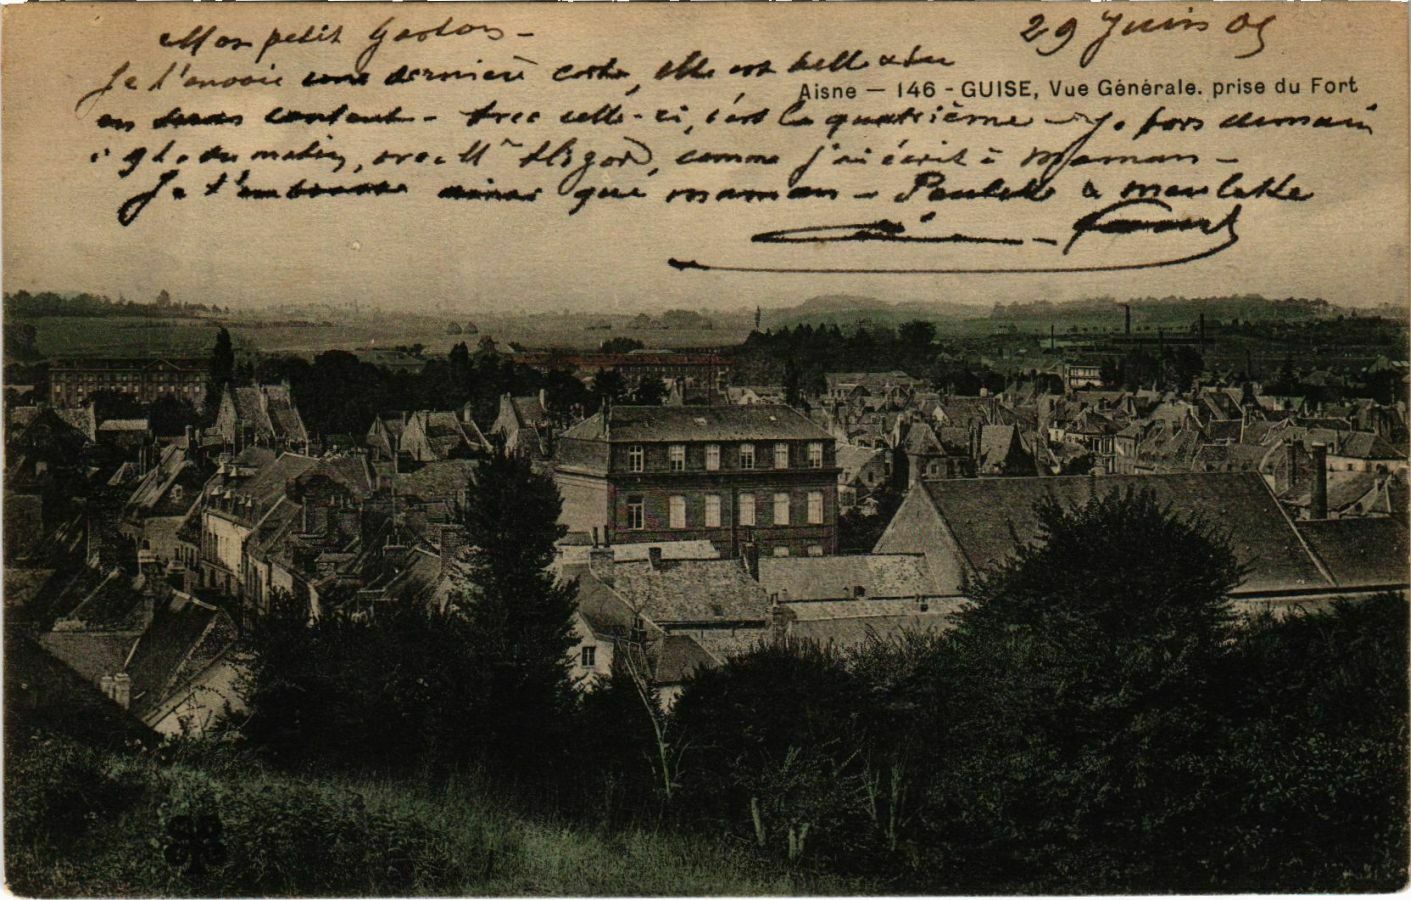 29 Juin 05
Mon petit Gaston -
Je t'envoie une dernière carte, elle est belle &
Aisne — 146 - GUISE, Vue Générale. prise du Fort
en content - Avec celle-ci, c'est la quatrième - Je pars demain
à 9h du matin, avec Mr comme j'ai écrit à Maman -
Je t'embrasse ainsi que maman - Paulette &